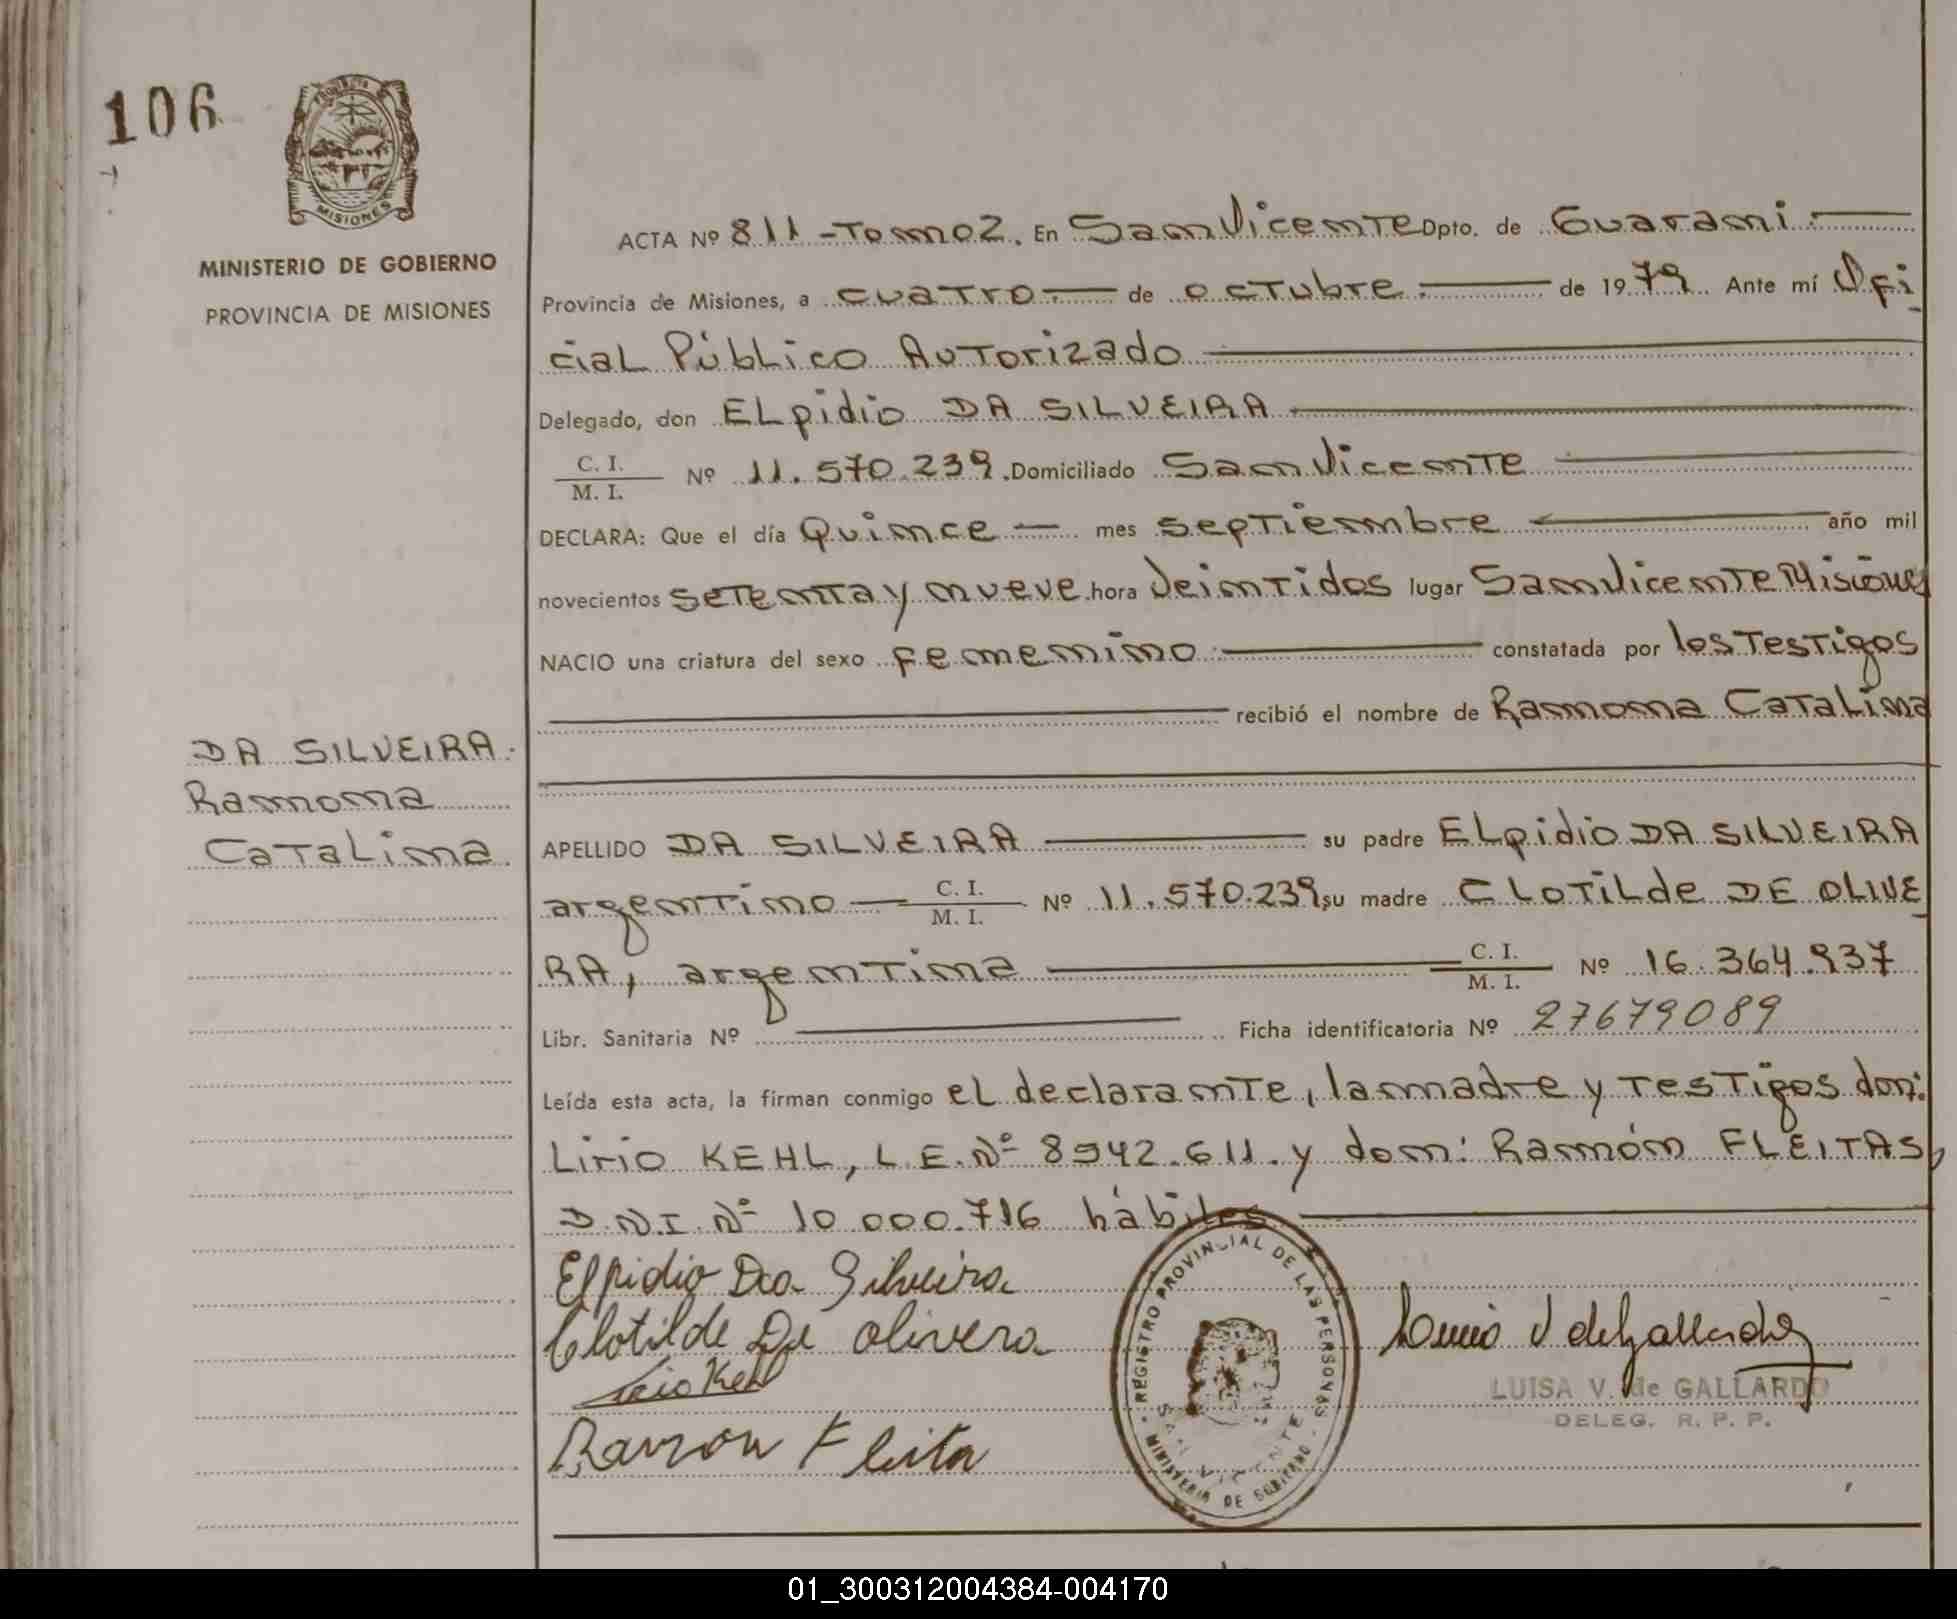 106
MISIONES
MINISTERIO DE GOBIERNO
PROVINCIA DE MISIONES
DA SILVEIRA.
Ramona
Catalina
ACTA Nº 811 - Tomo 2. En San Vicente Dpto. de Guarani.
Provincia de Misiones, a cuatro. de octubre. de 1979. Ante mí Ofi
cial Público Autorizado
Delegado, don Elpidio DA SILVEIRA
C. I.
M. I. Nº 11.570.239. Domiciliado San Vicente
DECLARA: Que el día Quince mes septiembre año mil
novecientos setenta y nueve hora Veintidos lugar San Vicente Misiones
NACIO una criatura del sexo femenino constatada por los Testigos
recibió el nombre de Ramona Catalina
APELLIDO DA SILVEIRA su padre Elpidio DA SILVEIRA
argentino C. I.
M. I. Nº 11.570.239, su madre CLOTILde DE OLIVE
RA, argentina C. I.
M. I. Nº 16.364.937
Libr. Sanitaria Nº Ficha identificatoria Nº 27679089
Leída esta acta, la firman conmigo el declarante, la madre y Testigos don:
Lirio KEHL, L.E.Nº 8942.611. y don: Ramón FLEITAS,
D.N.I. Nº 10.000.716 hábiles
Elpidio Da Silveira
Clotilde De olivera
Lirio Kehl
Ramon Fleita
REGISTRO PROVINCIAL DE LAS PERSONAS
SAN VICENTE
MINISTERIO DE GOBIERNO
Luisa V de Gallardo
LUISA V. de GALLARDO
DELEG. R. P. P.
01_300312004384-004170